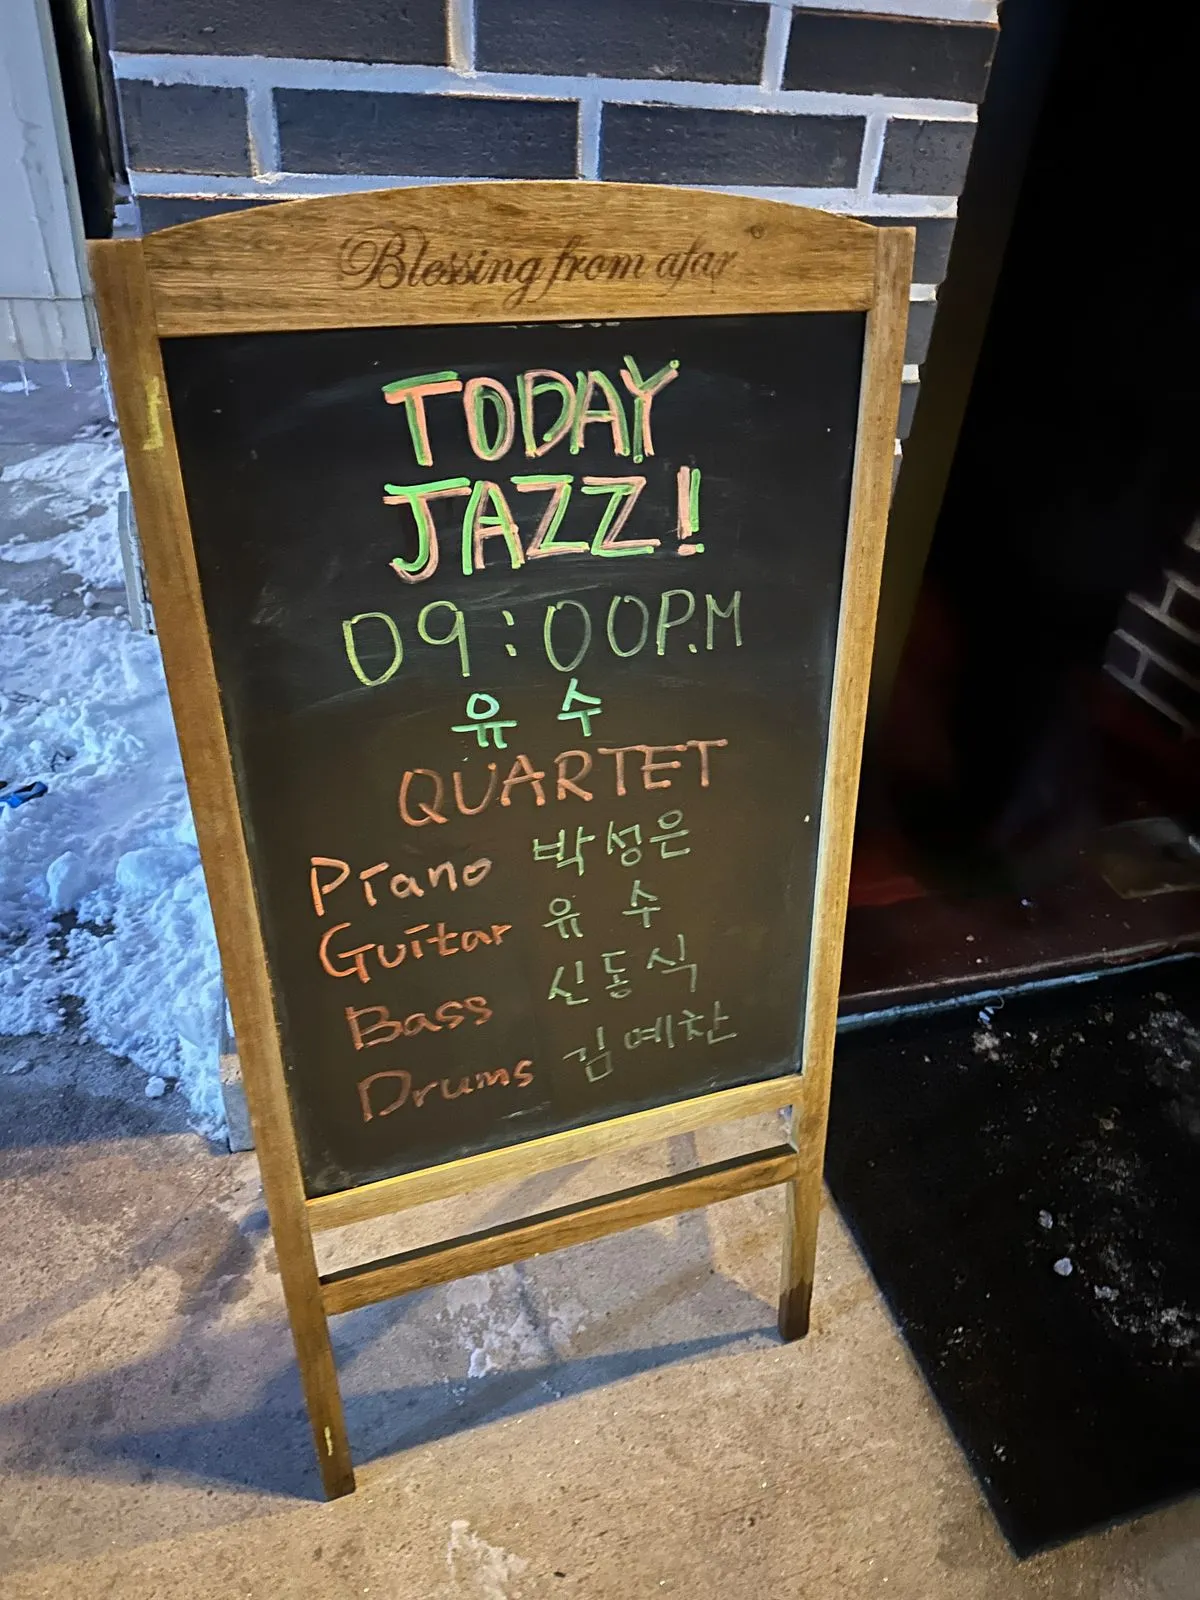 Blessing from afar
TODAY
JAZZ!
09:00P.M
유 수
QUARTET
Piano 박성은
Guitar 유 수
Bass 신동식
Drums 김예찬